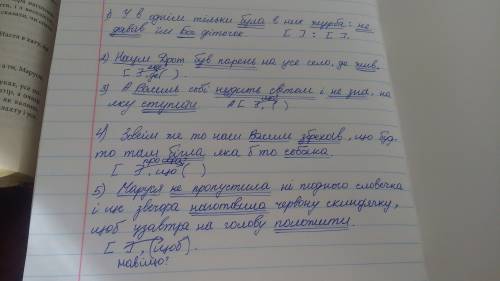 1) У в однім тільки була в них журба: не
давав їм Бог діточок. [ ] : [ ].
2) Наум Дрот був парень на усе село, де жив.
[ ], де ( ).
3) А Василь собі нудить світом і не зна, на
яку ступити. А [ ], ( )
4) Зовсім же то наш Василь збрехав, що буд-
то там бігла яка б то собака.
[ ], що ( )
5) Маруся не пропустила ні жодного словечка
і ще звечора наготовила червону скиндячку,
щоб узавтра на голову положити.
[ ], (щоб).
навіщо?